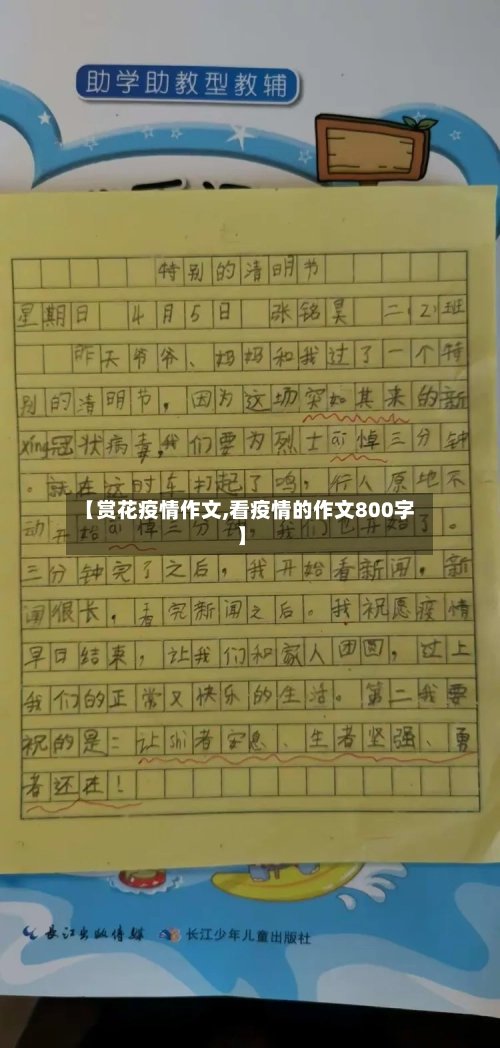 助学助教型教辅
特别的清明节
星期日 4月5日 张铭昊 二(2)班
昨天爷爷、妈妈和我过了一个特
别的清明节，因为这场突如其来的新
xíng冠状病毒,我们要为烈士āi悼三分钟
。就在这时车打起了鸣，行人原地不
动开始āi悼三分钟，我们也开始了。
【赏花疫情作文,看疫情的作文800字
】
三分钟完了之后，我开始看新闻，新
闻很长，看完新闻之后。我祝愿疫情
早日结束，让我们和家人团圆，过上
我们的正常又快乐的生活。第二我要
祝的是：让shì者安息、生者坚强、勇
者还在！
长江出版传媒 长江少年儿童出版社